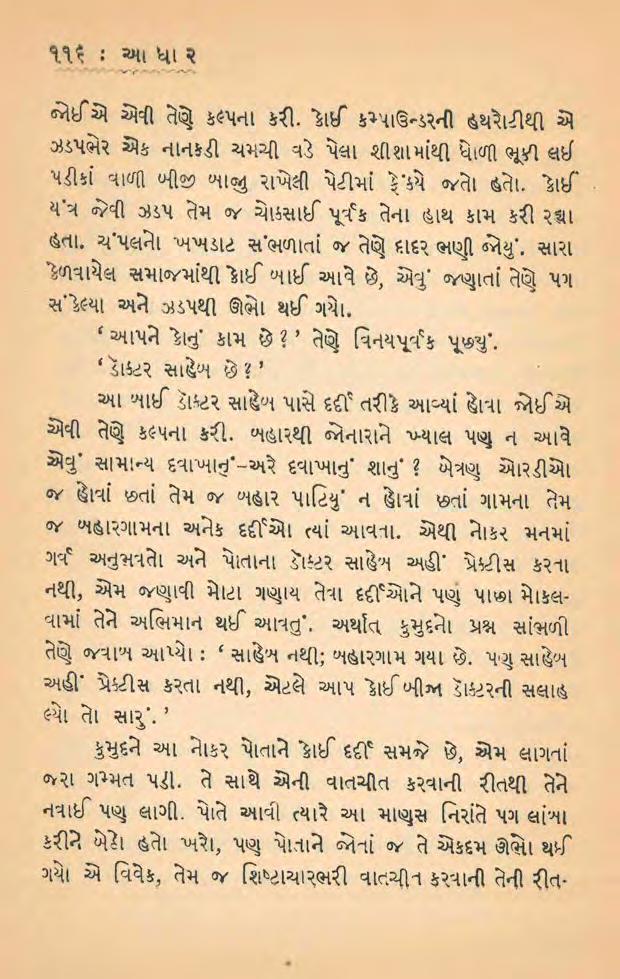 ૧૧૬ : આ ધા ર
જોઈએ એવી તેણે કલ્પના કરી. કોઈ કમ્પાઉન્ડરની હથરોટીથી એ
ઝડપભેર એક નાનકડી ચમચી વડે પેલા શીશામાંથી ધોળી ભૂકી લઈ
પડીકાં વાળી બીજી બાજુ રાખેલી પેટીમાં ફેંક્યે જતો હતો. કોઈ
યંત્ર જેવી ઝડપ તેમ જ ચોક્સાઈ પૂર્વક તેના હાથ કામ કરી રહ્યા
હતા. ચંપલનો ખખડાટ સંભળાતાં જ તેણે દાદર ભણી જોયું. સારા
કેળવાયેલ સમાજમાંથી કોઈ બાઈ આવે છે, એવું જણાતાં તેણે પગ
સંકેલ્યા અને ઝડપથી ઊભો થઈ ગયો.
‘ આપને કોનું કામ છે ? ’ તેણે વિનયપૂર્વક પૂછ્યું.
‘ ડૉક્ટર સાહેબ છે ? ’
આ બાઈ ડૉક્ટર સાહેબ પાસે દર્દી તરીકે આવ્યાં હોવા જોઈએ
એવી તેણે કલ્પના કરી. બહારથી જોનારાને ખ્યાલ પણ ન આવે
એવું સામાન્ય દવાખાનું–અરે દવાખાનું શાનું ? બેત્રણ ઓરડીઓ
જ હોવાં છતાં તેમ જ બહાર પાટિયું ન હોવાં છતાં ગામના તેમ
જ બહારગામના અનેક દર્દીઓ ત્યાં આવતા. એથી નોકર મનમાં
ગર્વ અનુભવતો અને પોતાના ડૉક્ટર સાહેબ અહીં પ્રેક્ટીસ કરતા
નથી, એમ જણાવી મોટા ગણાય તેવા દર્દીઓને પણ પાછા મોકલ-
વામાં તેને અભિમાન થઈ આવતું. અર્થાત્ કુમુદનો પ્રશ્ન સાંભળી
તેણે જવાબ આપ્યો : ‘ સાહેબ નથી; બહારગામ ગયા છે. પણ સાહેબ
અહીં પ્રેક્ટીસ કરતા નથી, એટલે આપ કોઈ બીજા ડૉક્ટરની સલાહ
લ્યો તો સારું. ’
કુમુદને આ નોકર પોતાને કોઈ દર્દી સમજે છે, એમ લાગતાં
જરા ગમ્મત પડી. તે સાથે એની વાતચીત કરવાની રીતથી તેને
નવાઈ પણ લાગી. પોતે આવી ત્યારે આ માણસ નિરાંતે પગ લાંબા
કરીને બેઠો હતો ખરો, પણ પોતાને જોતાં જ તે એકદમ ઊભો થઈ
ગયો એ વિવેક, તેમ જ શિષ્ટાચારભરી વાતચીત કરવાની તેની રીત-